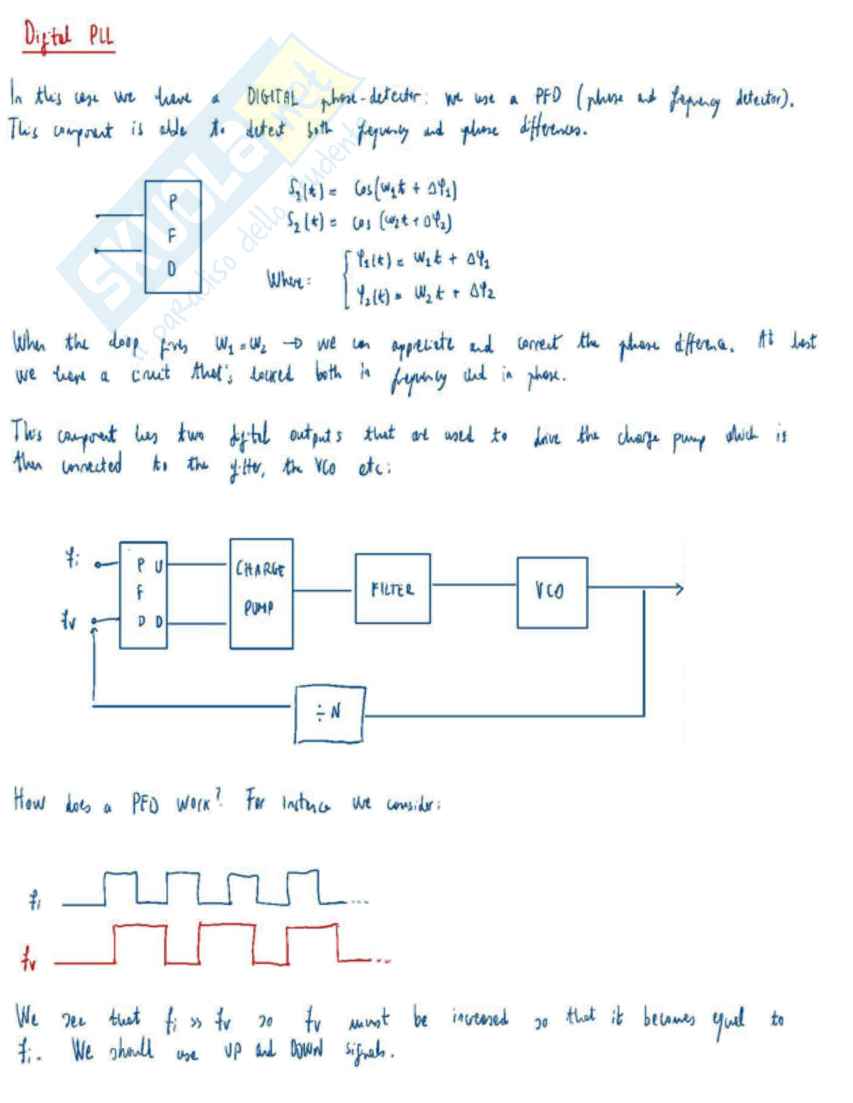 Digital PLL
In this case we have a DIGITAL phase-detector: we use a PFD (phase and frequency detector).
This component is able to detect both frequency and phase differences.
P
F
D
S₁(t) = cos(ω₁t + Δφ₁)
S₂(t) = cos(ω₂t + Δφ₂)
Where:
φ₁(t) = ω₁t + Δφ₁
φ₂(t) = ω₂t + Δφ₂
When the loop fixes ω₁=ω₂ → we can appreciate and correct the phase difference. At last
we have a circuit that's locked both in frequency and in phase.
This component has two digital outputs that are used to drive the charge pump which is
then connected to the filter, the VCO etc:
fi
P U
F
D D
fv
CHARGE
PUMP
FILTER
VCO
÷N
How does a PFD work? For instance we consider:
fi ...
fv ...
We see that fi >> fv so fv must be increased so that it becomes equal to
fi. We should use UP and DOWN signals.
SKUOLA.net
il paradiso dello studente